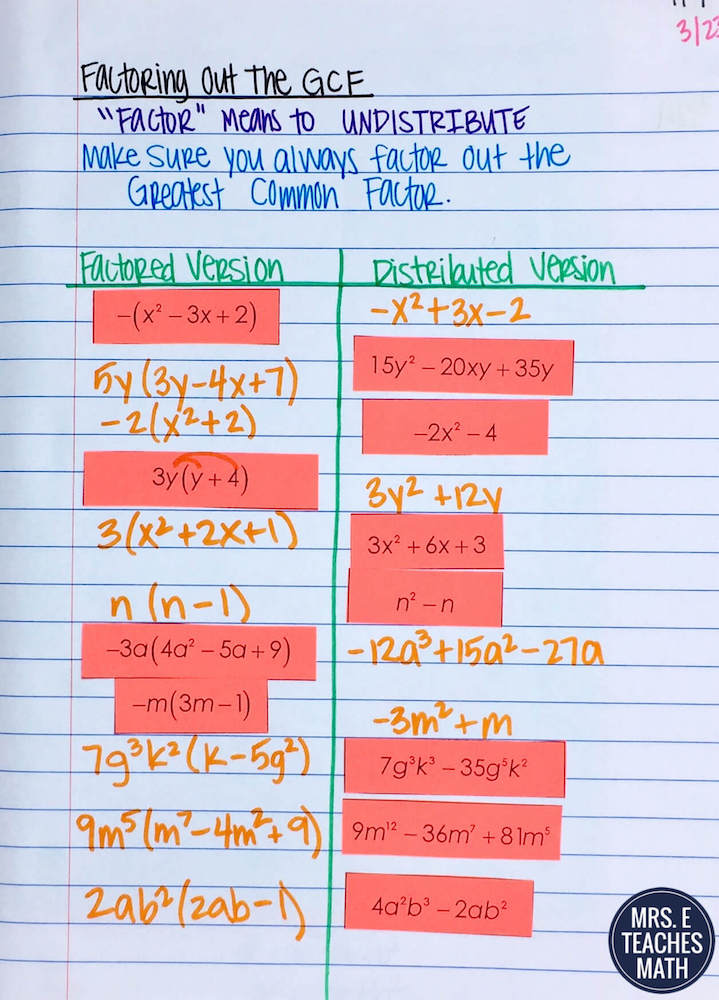 3/23
Factoring Out The GCF
"Factor" Means to UNDISTRIBUTE
Make sure you always factor out the
Greatest Common Factor.
Factored Version Distributed Version
−(x² − 3x + 2) -x² + 3x - 2
5y(3y-4x+7) 15y² − 20xy + 35y
-2(x²+2) −2x² − 4
3y(y + 4) 3y² + 12y
3(x²+2x+1) 3x² + 6x + 3
n(n-1) n² − n
−3a(4a² − 5a + 9) -12a³+15a²-27a
−m(3m − 1) -3m²+m
7g³k²(k-5g²) 7g³k³ − 35g⁵k²
9m⁵(m⁷-4m²+9) 9m¹² − 36m⁷ + 81m⁵
2ab²(2ab-1) 4a²b³ − 2ab²
MRS. E
TEACHES
MATH